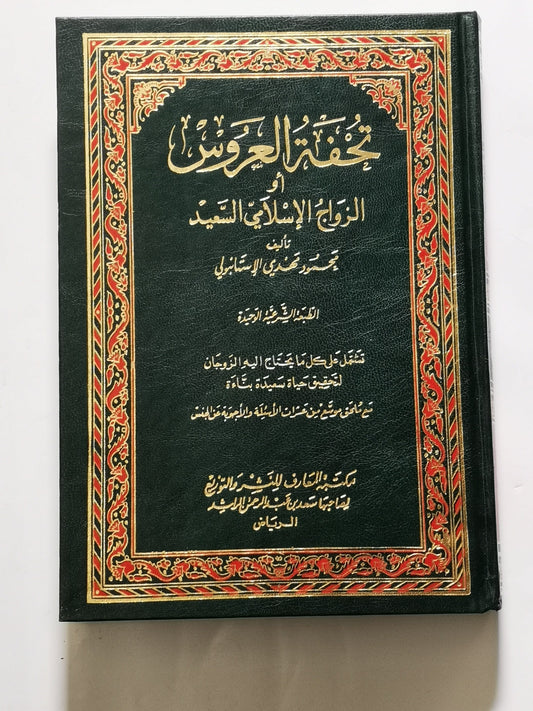 تُحْفَةُ العَرُوسْ
أو
الزَّوَاجُ الإِسْلَامِيّ السَّعِيْد
تأليف
محمود مهدي الإستانبولي
الطبعة الشرعية الوحيدة
تشتمل على كل ما يحتاج اليه الزوجان
لتحقيق حياة سعيدة بناءة
مع ملحق موسّع من عشرات الأسئلة والأجوبة عن الجنس
مكتبة المعارف للنشر والتوزيع
لصاحبها سعد بن عبد الرحمن الراشد
الرياض